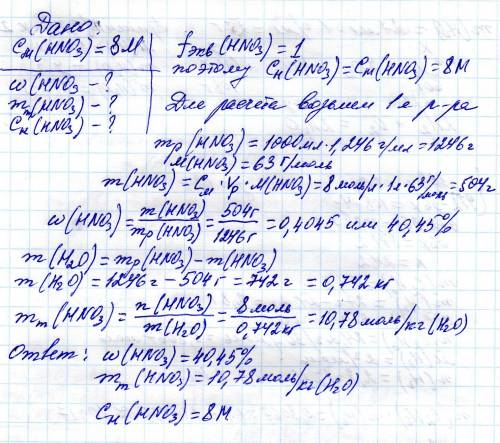 Дано:
Cм(HNO3)=8М
ω(HNO3 - ?
mm(HNO3) - ?
Cн(HNO3) - ?
fэкв(HNO3)=1
поэтому Cн(HNO3)=Cm(HNO3)=8М
Для расчёта возьмем 1л р-ра
mр(HNO3)=1000мл·1,246г/мл=1246г
М(HNO3)=63г/моль
m(HNO3)=Cм·Vр·М(HNO3)=8моль/л·1л·63г/моль=504г
ω(HNO3)=m(HNO3)/mр(HNO3)=504г/1246г=0,4045 или 40,45%
m(H2O)=mр(HNO3)-m(HNO3)
m(H2O)=1246г-504г=742г=0,742кг
mm(HNO3)=n(HNO3)/m(H2O)=8моль/0,742кг=10,78моль/кг(H2O)
Ответ: ω(HNO3)=40,45%
mm(HNO3)=10,78моль/кг(H2O)
Cн(HNO3)=8М